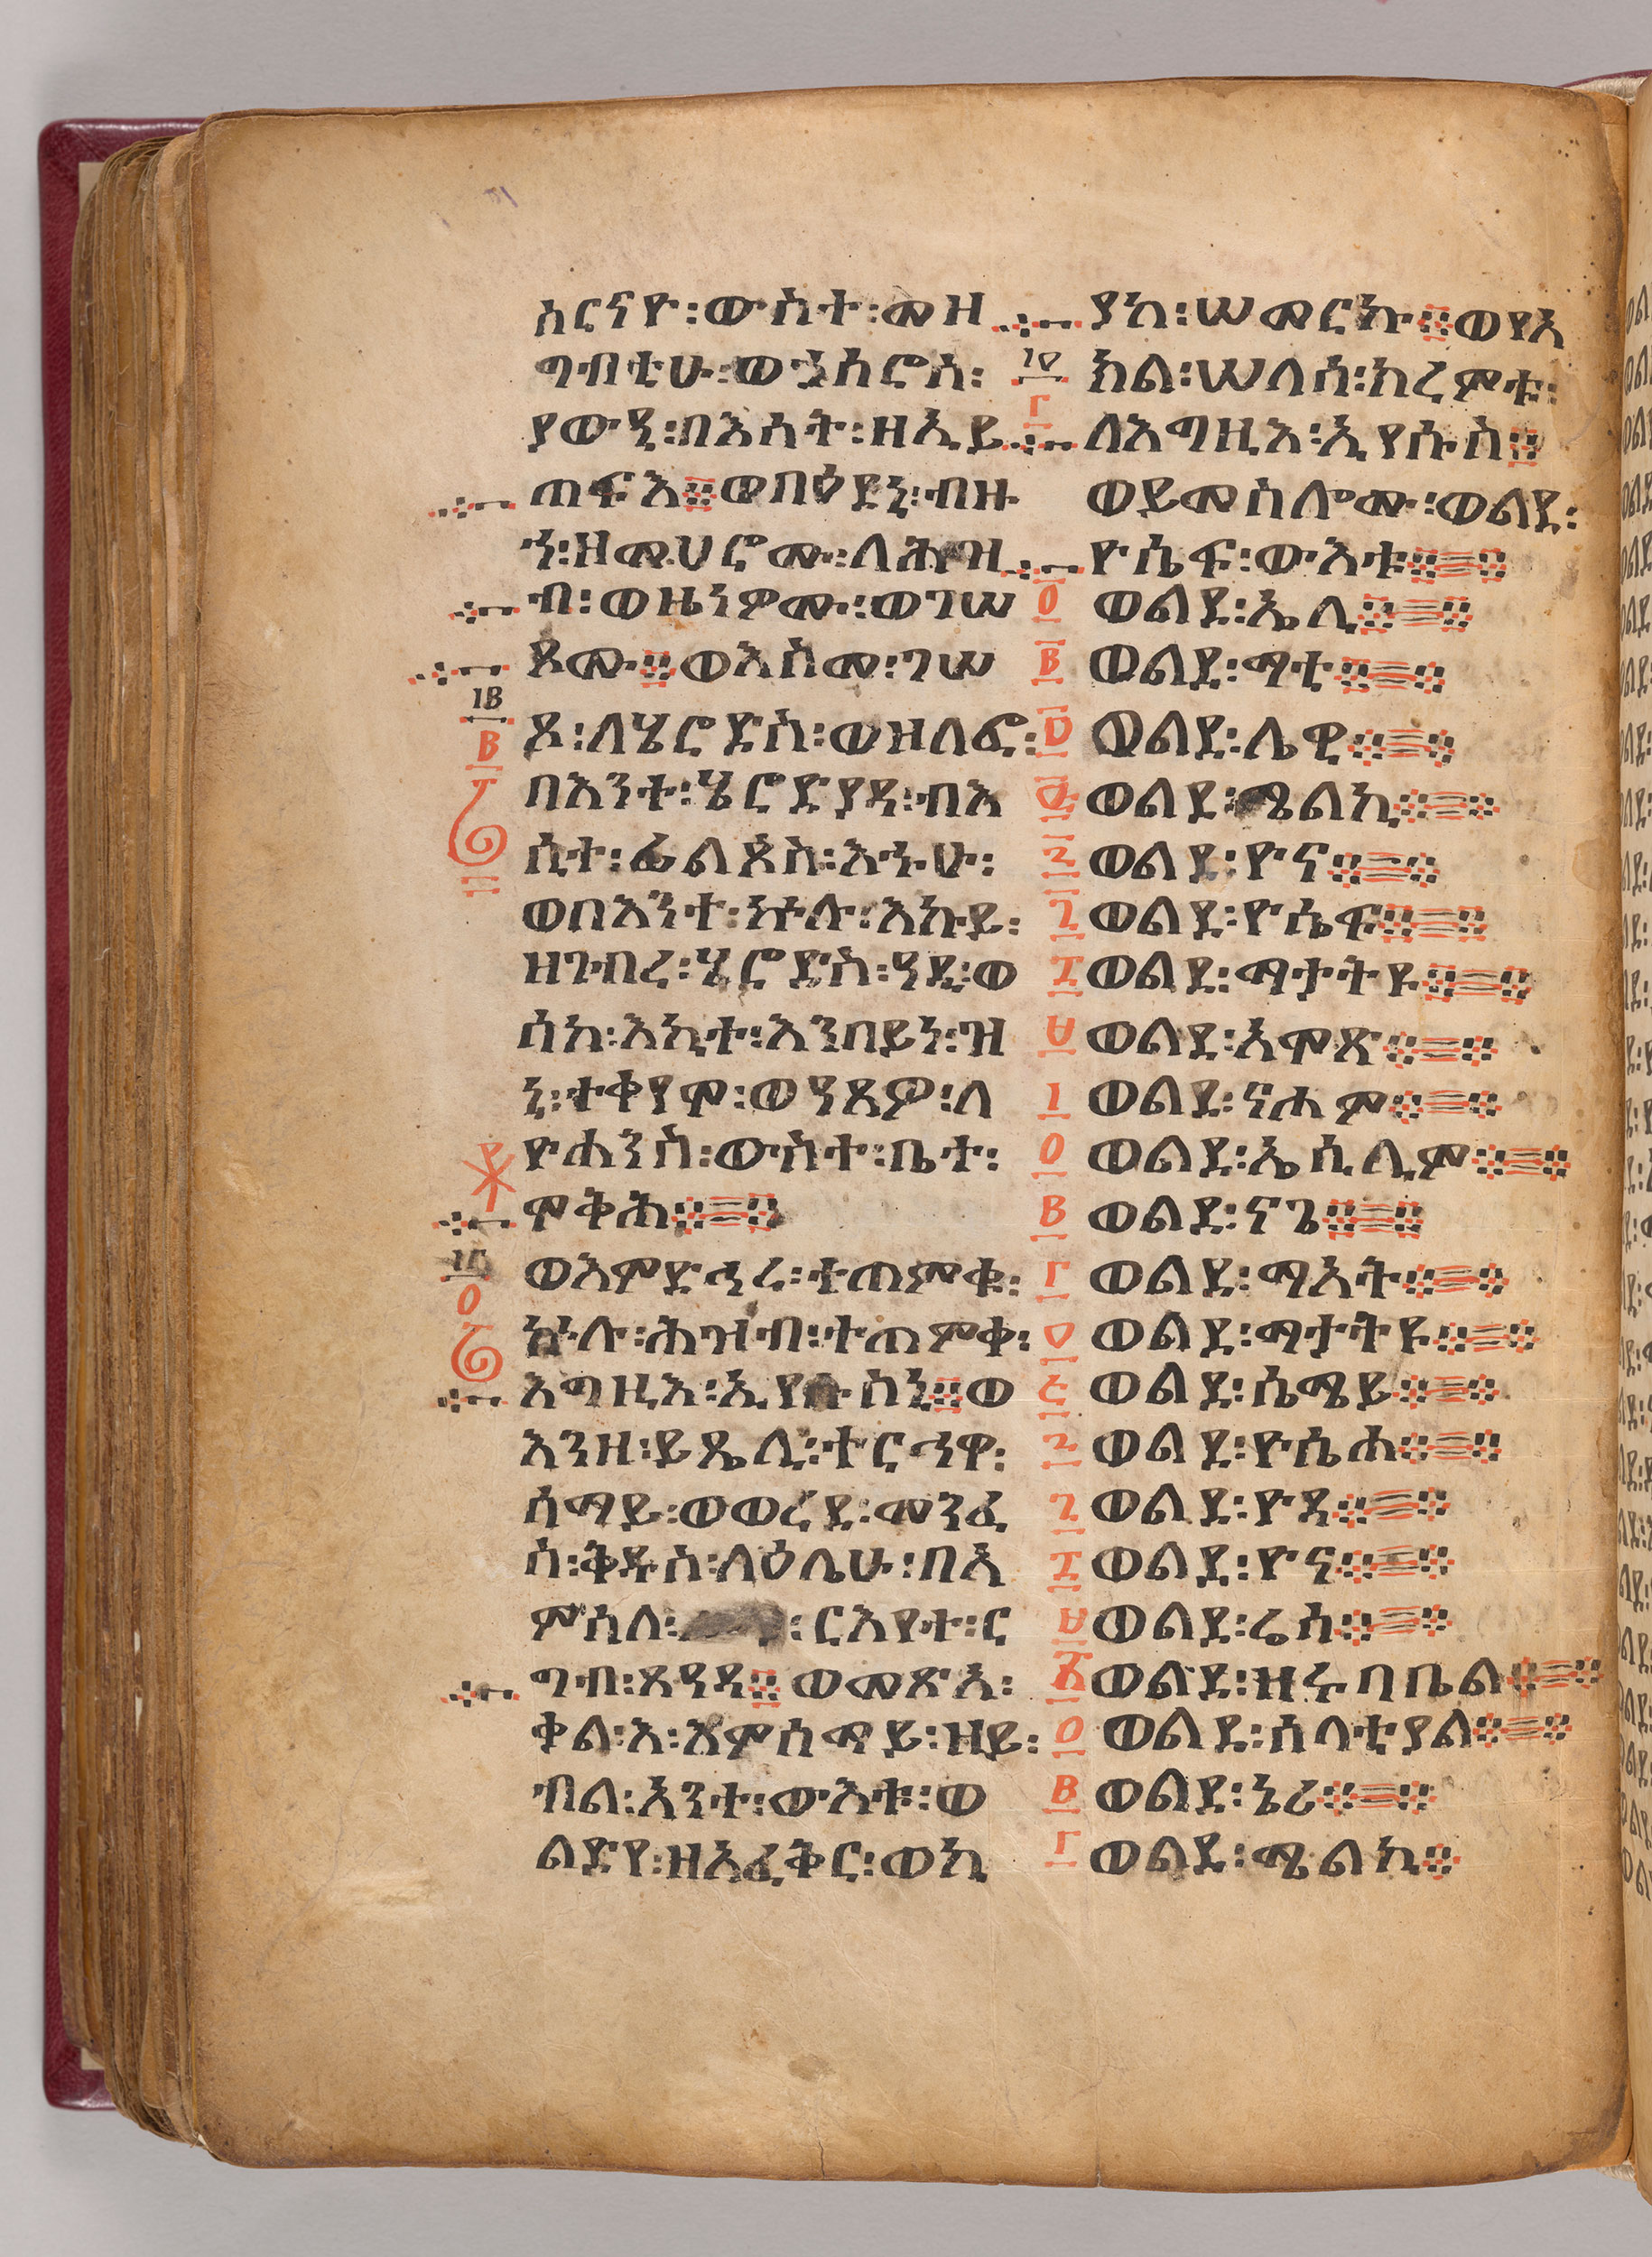 ስርናዮ፡ውስተ፡መዝ
ግብቲሁ፡ወኃሰሮሰ፡
ያውዒ፡በእሳት፡ዘኢይ
ጠፍእ፨ወበዕደኒ፡ብዙ
ኅ፡ዘመሀሮሙ፡ለሕዝ
ብ፡ወዜነዎሙ፡ወገሠ
ጾሙ፨ወእስመ፡ገሠ
ጾ፡ለሄሮድስ፡ወዘለፎ፡
በእንተ፡ሄሮድያዳ፡ብእ
ሲተ፡ፊልጶስ፡እኁሁ፡
ወበእንተ፡ኵሉ፡እኩይ፡
ዘገብረ፡ሄሮድስ፡ዓዲ፡ወ
ሰከ፡እኪተ፡እንበይነ፡ዝ
ኒ፡ተቀየሞ፡ወዓጸዎ፡ለ
ዮሐንስ፡ውስተ፡ቤተ፡
ሞቅሕ፨=፨
ወእምድኅረ፡ተጠምቁ፡
ኵሉ፡ሕዝብ፡ተጠምቀ፡
እግዚእ፡ኢየሱስኒ፨ወ
እንዘ፡ይጼሊ፡ተርኅዋ፡
ሰማይ፡ወወረደ፡መንፈ
ስ፡ቅዱስ፡ላዕሌሁ፡በአ
ምሳለ፡ ፡ርእየተ፡ር
ግብ፡ጸዓዳ፨ወመጽአ፡
ቃል፡እ፡እምሰማይ፡ዘይ፡
ብል፡አንተ፡ውእቱ፡ወ
ልድየ፡ዘአፈቅር፡ወኪ
ያከ፡ሠመርኩ፨ወየአ
ክል፡ሠላሳ፡ክረምቱ፡
ለእግዚእ፡ኢየሱስ፨
ወይመስሎሙ፡ወልደ፡
ዮሴፍ፡ውእቱ፨=፨
ወልደ፡ኤሊ፨=፨
ወልደ፡ማቲ፨=፨
ወልደ፡ሌዊ፨=፨
ወልደ፡ሜልኪ፨=፨
ወልደ፡ዮና፨=፨
ወልደ፡ዮሴፍ፨=፨
ወልደ፡ማታትዩ፨=፨
ወልደ፡አሞጽ፨=፨
ወልደ፡ናሖም፨=፨
ወልደ፡ኤሲሊም፨=፨
ወልደ፡ናጌ፨=፨
ወልደ፡ማአት፨=፨
ወልደ፡ማታትዩ፨=፨
ወልደ፡ሴሜይ፨=፨
ወልደ፡ዮሴሕ፨=፨
ወልደ፡ዮዳ፨=፨
ወልደ፡ዮና፨=፨
ወልደ፡ሬስ፨=፨
ወልደ፡ዝሩባቤል፨=፨
ወልደ፡ሰላቲያል፨=፨
ወልደ፡ኔሪ፨=፨
ወልደ፡ሜልኪ፨